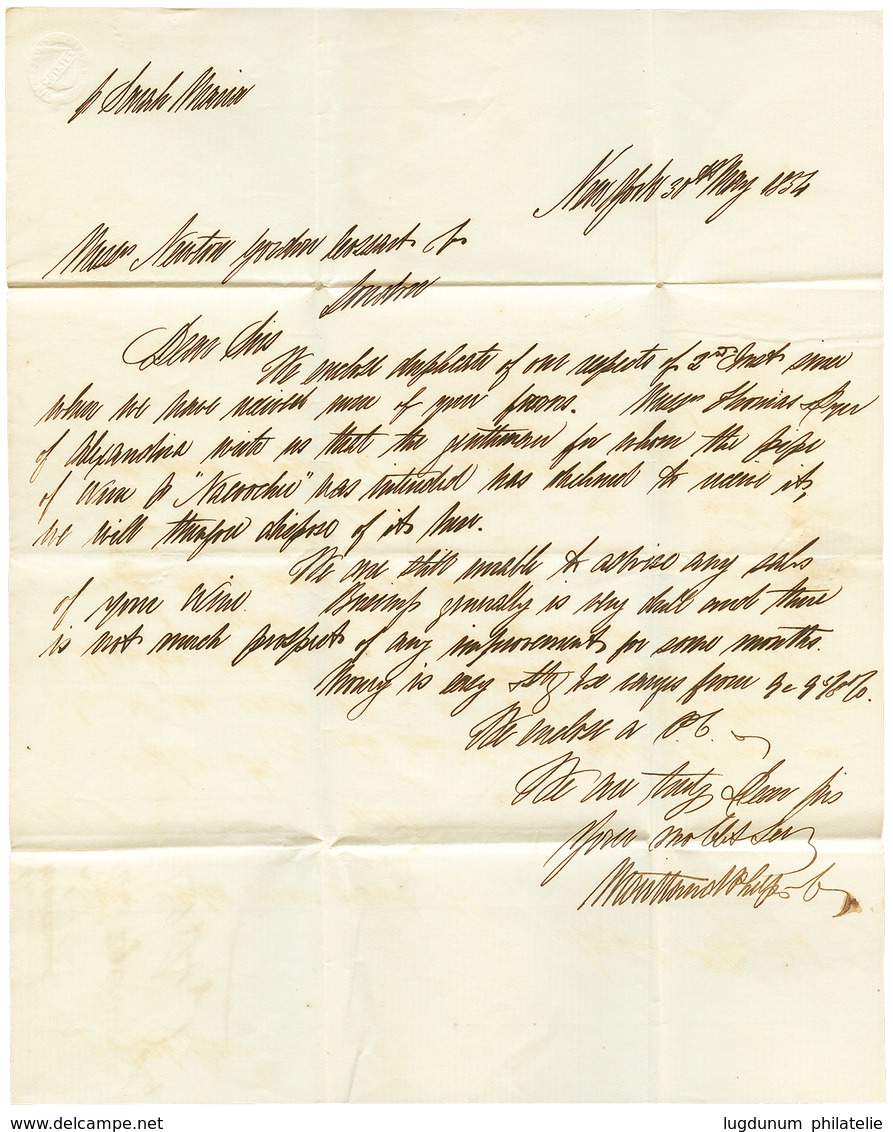 p Sarah Maria
New York 30th May 1854
Messrs Newton Gordon Cossart & Co
London
Dear Sirs
We enclose duplicate of our respects of 2nd Inst since
when we have received none of your favors. Messrs Thomas & Dyer
of Alexandria write us that the gentleman for whom the pipe
of Wine p "Nacoochee" was intended has declined to receive it,
we will therefore dispose of it here.
We are still unable to advise any sales
of your Wine. Business generally is very dull and there
is not much prospect of any improvement for some months.
Money is easy Stg Exe ranges from 9 @
We enclose a P.C.
We are truly Dear Sirs
Your mo Obt Ser
Maitland Phelps & Co
www.delcampe.net
lugdunum philatelie